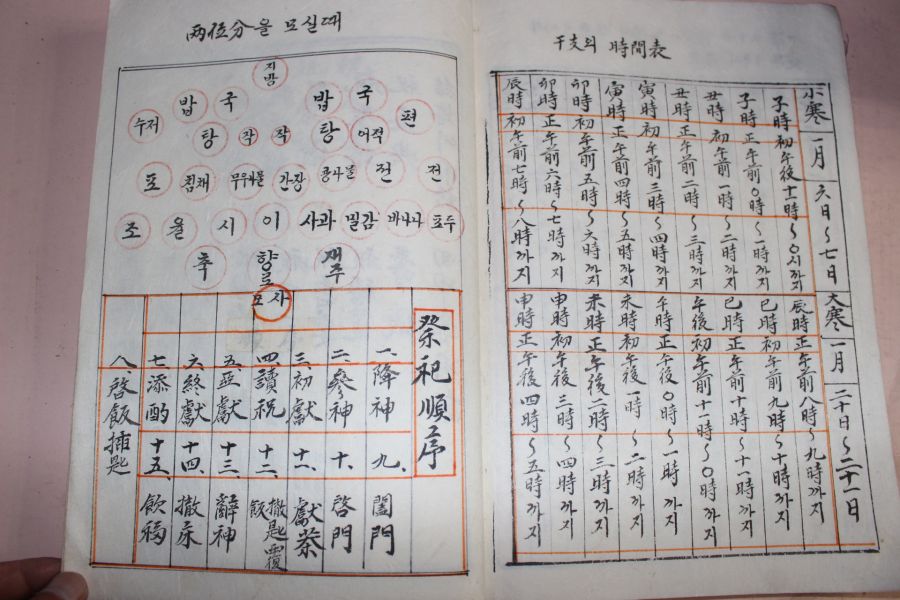 兩位分을 모실때
지방
밥 국 밥 국
수저 탕 작 작 탕 어적 편
포 침채 무우나물 간장 콩나물 전 전
조 율 시 이 사과 밀감 바나나 포두
축 향로 재주
모사
祭祀順序
一. 降神
二. 參神
三. 初獻
四. 讀祝
五. 亞獻
六. 終獻
七. 添酌
八. 啓飯揷匙
九. 闔門
十. 啓門
十一. 獻茶
十二. 撤匙覆飯
十三. 辭神
十四. 撤床
十五. 飮福
干支의 時間表
小寒 一月 六日~七日 大寒 一月 二十日~二十一日
子時 初 午後十一時~0시까지
子時 正 午前0時~一時까지
丑時 初 午前一時~二時까지
丑時 正 午前二時~三時까지
寅時 初 午前三時~四時까지
寅時 正 午前四時~五時까지
卯時 初 午前五時~六時까지
卯時 正 午前六時~七時까지
辰時 初 午前七時~八時까지
辰時 正 午前八時~九時까지
巳時 初 午前九時~十時까지
巳時 正 午前十時~十一時까지
午後 初 午前十一時~0時까지
午時 正 午後0時~一時까지
未時 初 午後一時~二時까지
未時 正 午後二時~三時까지
申時 初 午後三時~四時까지
申時 正 午後四時~五時까지